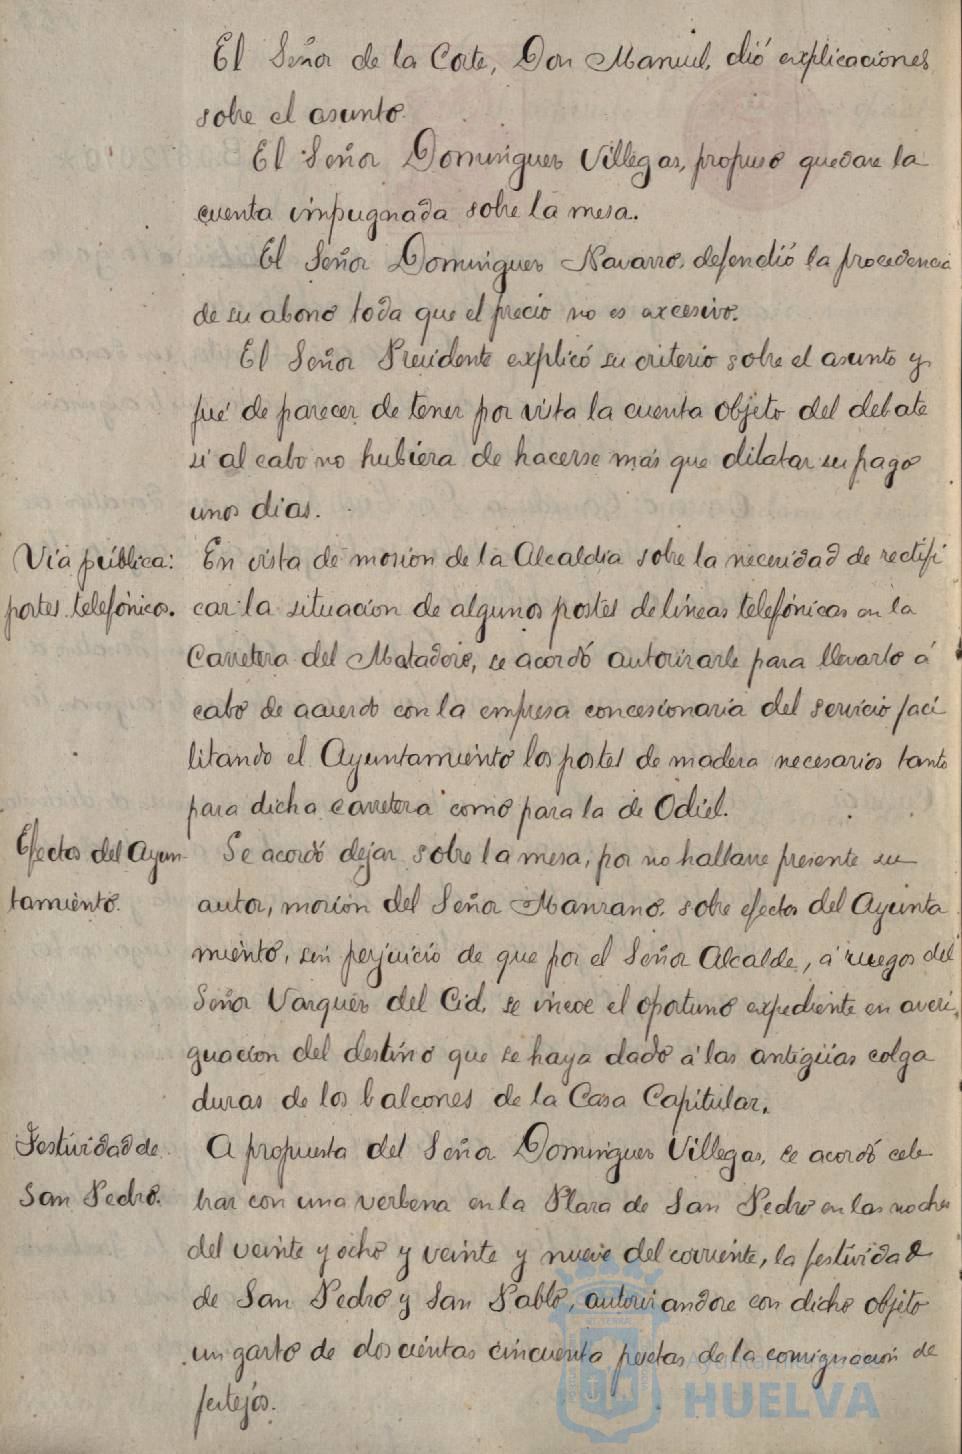 El Señor de la Corte, Don Manuel, dió explicaciones
sobre el asunto.
El Señor Domínguez Villegas, propuso quedase la
cuenta impugnada sobre la mesa.
El Señor Domínguez Navarro, defendió la procedencia
de su abono toda que el precio no es excesivo.
El Señor Presidente explicó su criterio sobre el asunto y
fué de parecer de tener por vista la cuenta objeto del debate
si al cabo no hubiera de hacerse más que dilatar su pago
unos dias.
Via pública:
postes telefónicos.
En vista de moción de la Alcaldia sobre la necesidad de rectifi
car la situacion de algunos postes de líneas telefónicas en la
Carretera del Matadero, se acordó autorizarle para llevarlo á
cabo de acuerdo con la empresa concesionaria del servicio faci
litando el Ayuntamiento los postes de madera necesarios tanto
para dicha carretera como para la de Odiel.
Efectos del Ayun-
tamiento.
Se acordó dejar sobre la mesa, por no hallarse presente su
autor, moción del Señor Manzano, sobre efectos del Ayunta
miento, sin perjuicio de que por el Señor Alcalde, á ruegos del
Señor Vazquez del Cid, se incoe el oportuno expediente en averi
guacion del destino que se haya dado á las antigüas colga
duras de los balcones de la Casa Capitular.
Festividad de
San Pedro.
A propuesta del Señor Domínguez Villegas, se acordó cele
brar con una verbena en la Plaza de San Pedro en las noches
del veinte y ocho y veinte y nueve del corriente, la festividad
de San Pedro y San Pablo, autorizandose con dicho objeto
un gasto de doscientas cincuenta pesetas de la consignación de
festejos.
Ayuntamiento de
HUELVA